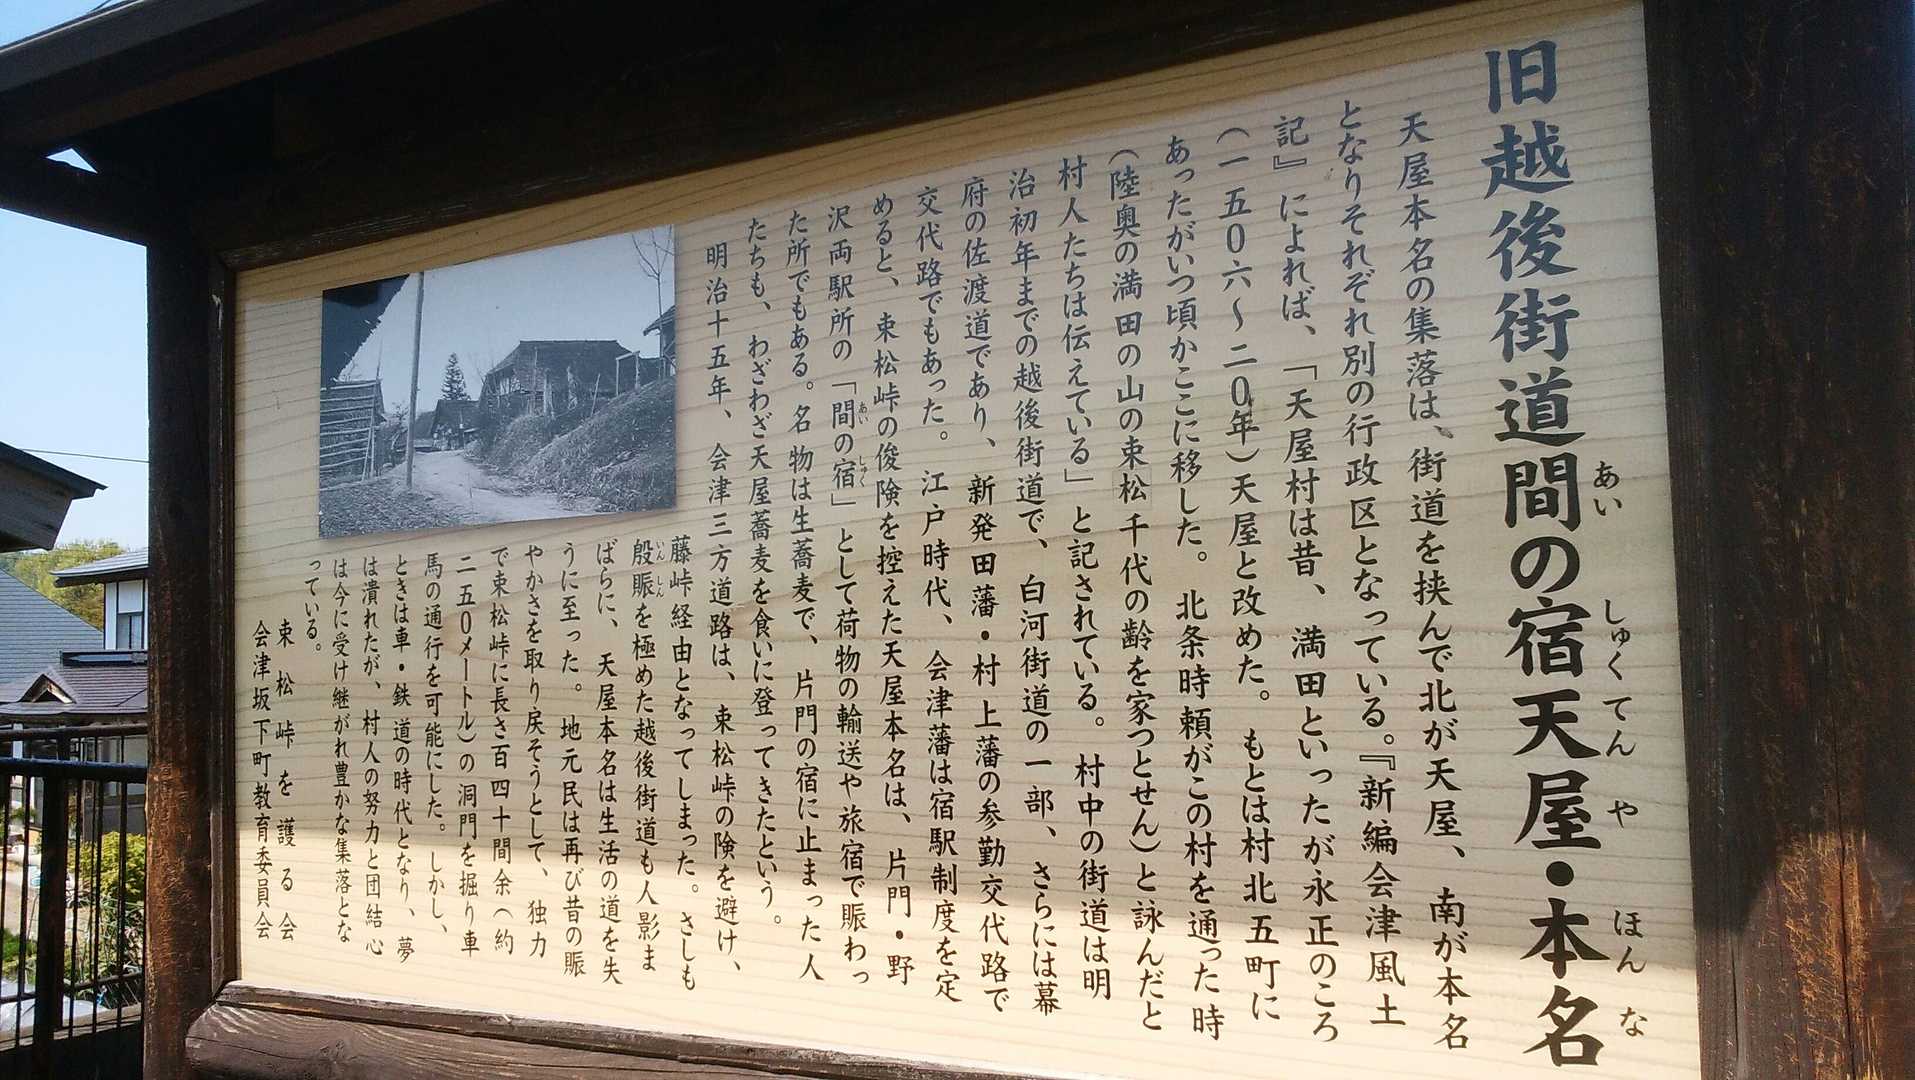 旧越後街道間の宿天屋・本名
あい　しゅくてんや　ほんな
天屋本名の集落は、街道を挟んで北が天屋、南が本名
となりそれぞれ別の行政区となっている。『新編会津風土
記』によれば、「天屋村は昔、満田といったが永正のころ
（一五０六～二０年）天屋と改めた。もとは村北五町に
あったがいつ頃かここに移した。北条時頼がこの村を通った時
（陸奥の満田の山の束松千代の齢を家つとせん）と詠んだと
村人たちは伝えている」と記されている。村中の街道は明
治初年までの越後街道で、白河街道の一部、さらには幕
府の佐渡道であり、新発田藩・村上藩の参勤交代路で
交代路でもあった。江戸時代、会津藩は宿駅制度を定
めると、束松峠の俊険を控えた天屋本名は、片門・野
沢両駅所の「間の宿」として荷物の輸送や旅宿で賑わっ
あい　しゅく
た所でもある。名物は生蕎麦で、片門の宿に止まった人
たちも、わざわざ天屋蕎麦を食いに登ってきたという。
明治十五年、会津三方道路は、束松峠の険を避け、
藤峠経由となってしまった。さしも
殷賑を極めた越後街道も人影ま
いんしん
ばらに、天屋本名は生活の道を失
うに至った。地元民は再び昔の賑
やかさを取り戻そうとして、独力
で束松峠に長さ百四十間余（約
二五０メートル）の洞門を掘り車
馬の通行を可能にした。しかし、
ときは車・鉄道の時代となり、夢
は潰れたが、村人の努力と団結心
は今に受け継がれ豊かな集落とな
っている。
束松峠を護る会
会津坂下町教育委員会